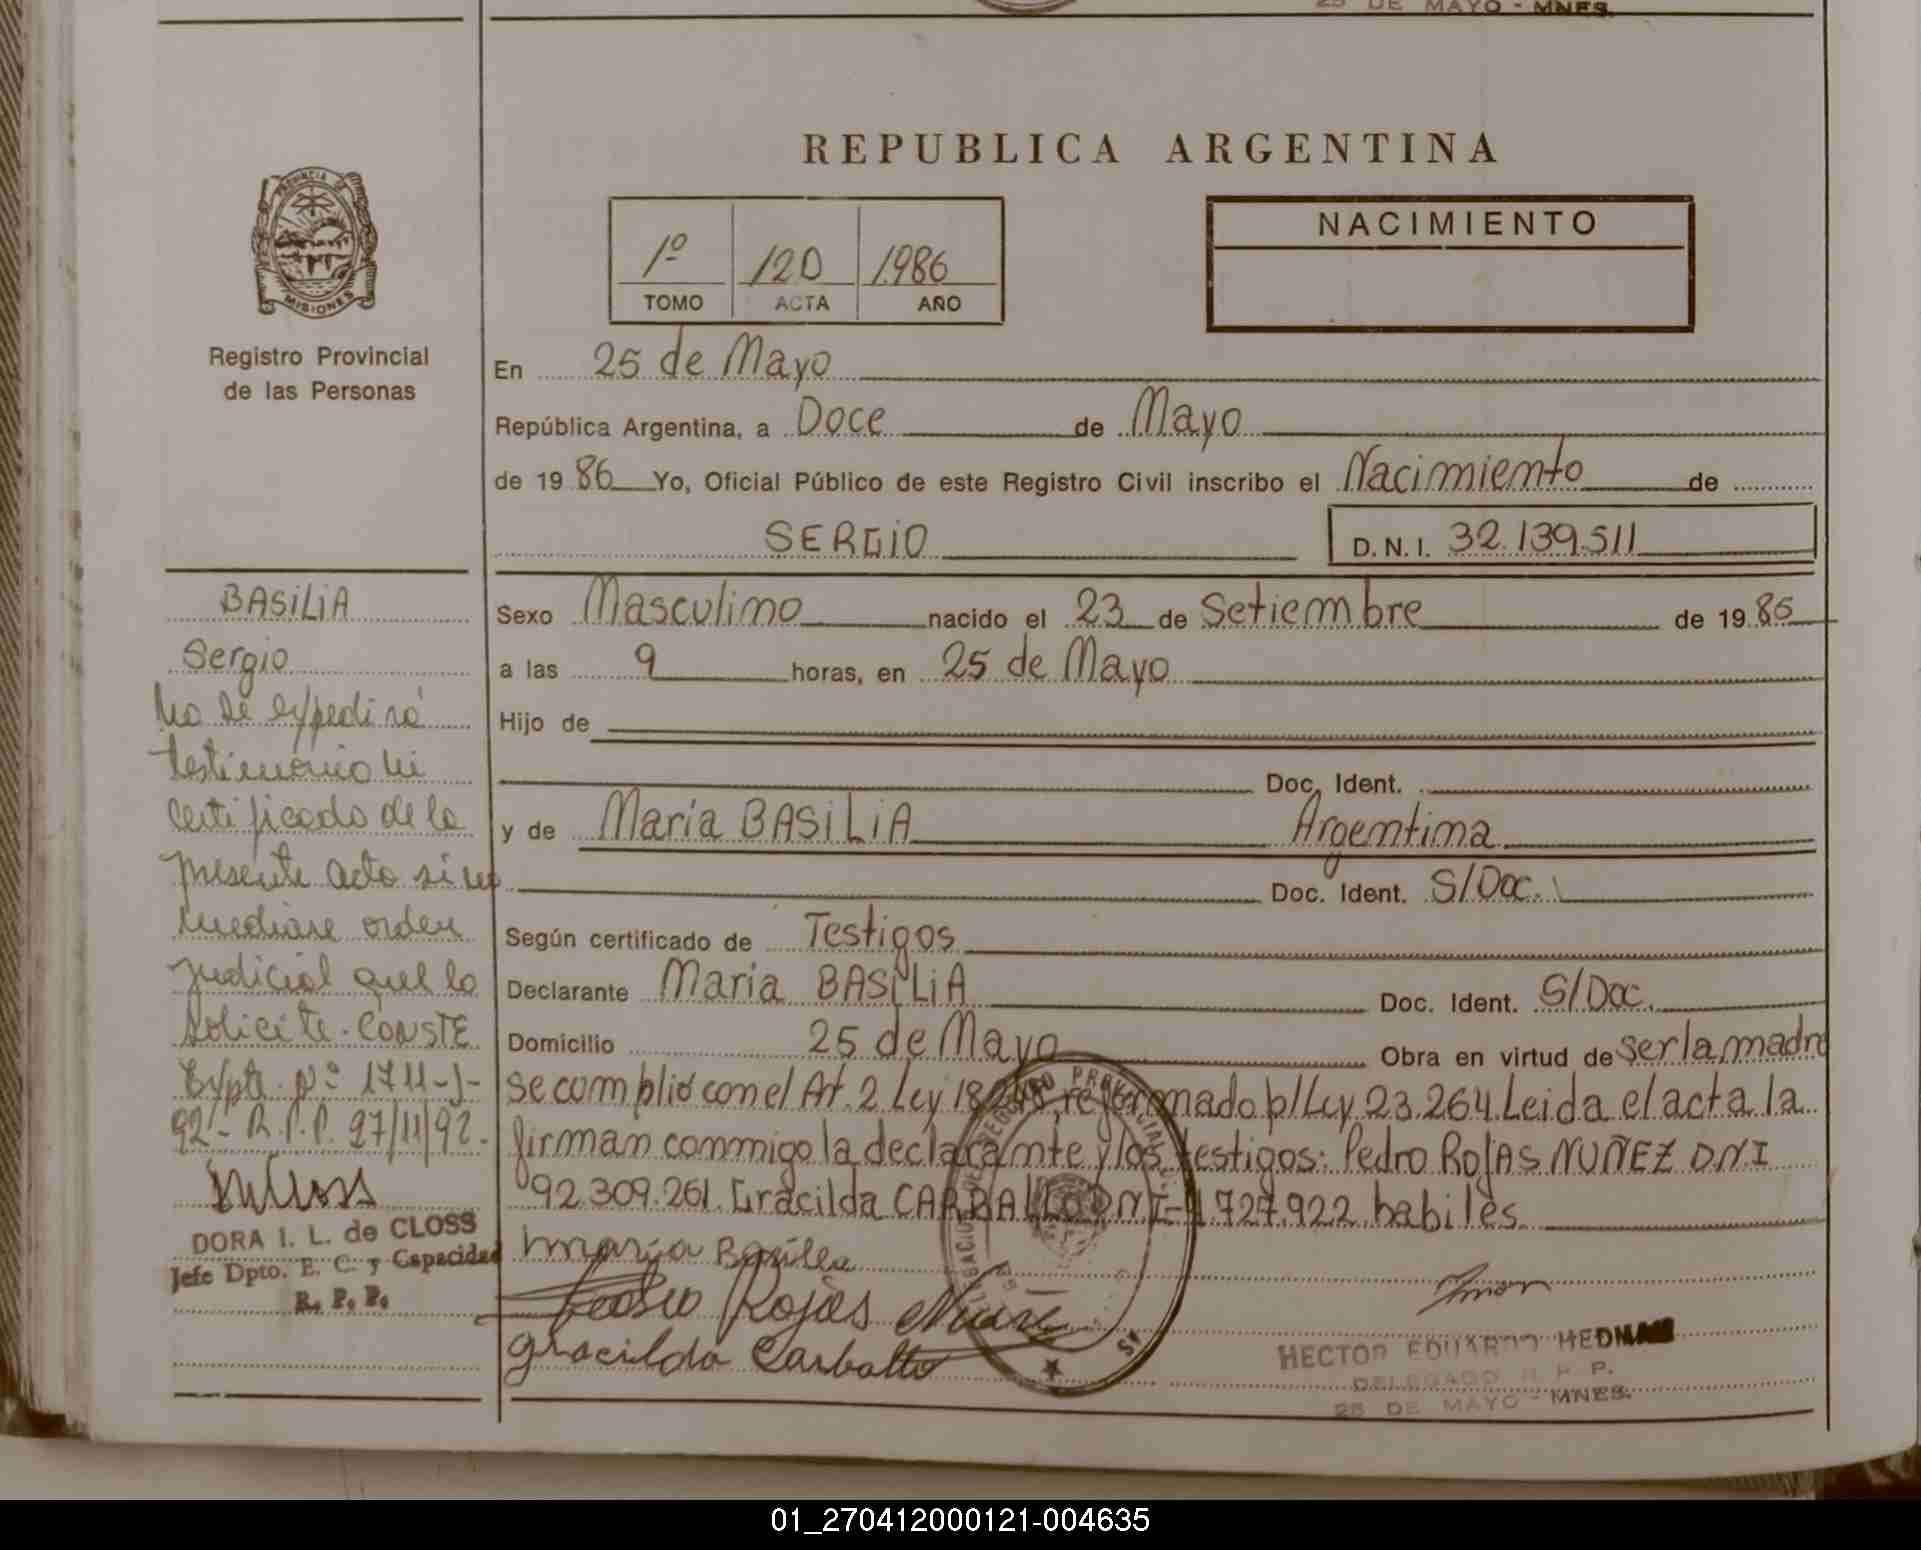 25 DE MAYO - MNES.
REPUBLICA ARGENTINA
PROVINCIA DE
MISIONES
Registro Provincial
de las Personas
1º 120 1986
TOMO ACTA AÑO
NACIMIENTO
En 25 de Mayo
República Argentina, a Doce de Mayo
de 19 86 Yo, Oficial Público de este Registro Civil inscribo el Nacimiento de
SERGIO D.N.I. 32.139.511
Sexo Masculino nacido el 23 de Setiembre de 19 85
a las 9 horas, en 25 de Mayo
Hijo de
Doc. Ident.
y de Maria BASILIA Argentina
Doc. Ident. S/Doc.
Según certificado de Testigos
Declarante Maria BASILIA Doc. Ident. S/Doc.
Domicilio 25 de Mayo Obra en virtud de ser la madre
se complió con el Art. 2 Ley 18.248, reformado p/Ley 23.264. Leida el acta la
firman conmigo la declarante y los testigos: Pedro ROJAS NUÑEZ DNI
92.309.261. Gracilda CARBALLO DNI 1.727.922 habiles
Maria Basilia
Pedro Rojas Nuñe
Gracilda Carballo
HECTOR EDUARDO HEDMAN
DELEGADO R. P. P.
25 DE MAYO - MNES.
BASILIA
Sergio
No se expedirá
testimonio ni
certificado de la
presente acta si no
mediare orden
judicial que lo
solicite. CONSTE
Expte. Nº 1711-J-
92- R.P.P. 27/11/92.
DORA I. L. de CLOSS
Jefe Dpto. E. C. y Capacidad
R. P. P.
01_270412000121-004635